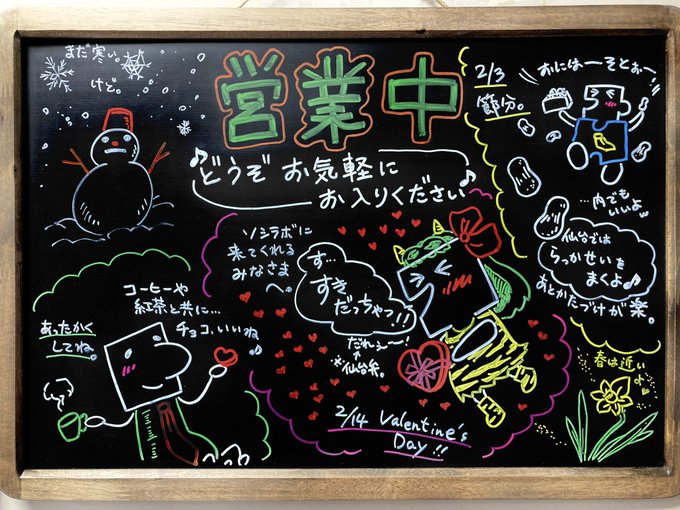 まだ寒い
けど。
営業中
♪どうぞ お気軽に
お入りください♪
2/3
節分。
おにはーそとぉー!
…内でも
いいよw
仙台では
らっかせいを
まくよ♪
あとかたづけが楽。
ソシラボに
来てくれる
みなさま
へ。
す…
すき
だっちゃっ!!
だれぇ〜!
*仙台弁。
2/14 Valentine's
Day!!
コーヒーや
紅茶と共に…
チョコ、いいね♪
あったかく
してね。
春は近い